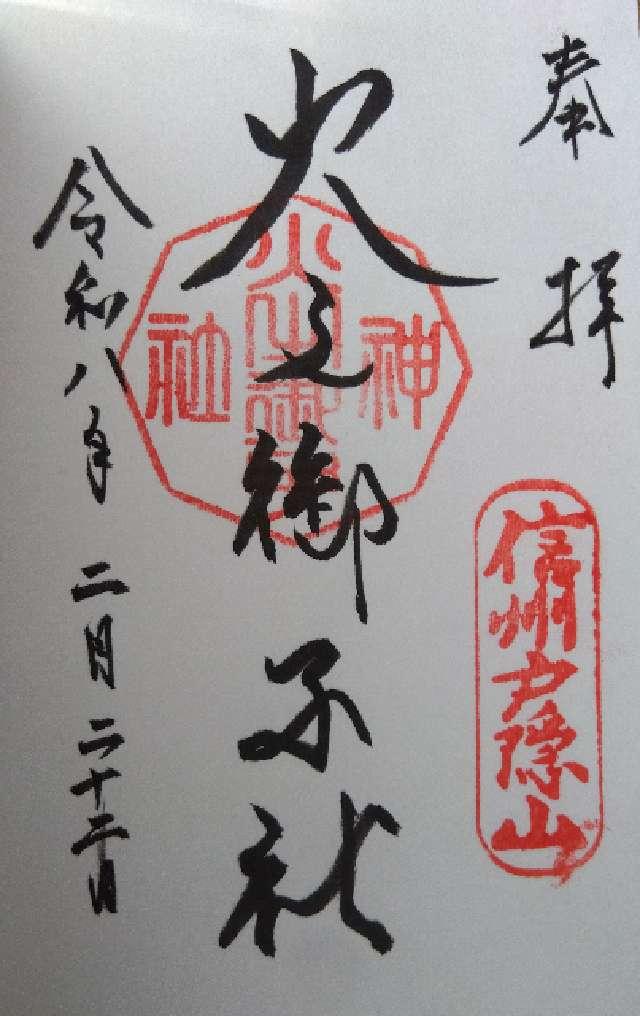 奉拝
信州戸隠山
火之御子社
神社
火之御子
令和八年 二月二十二日